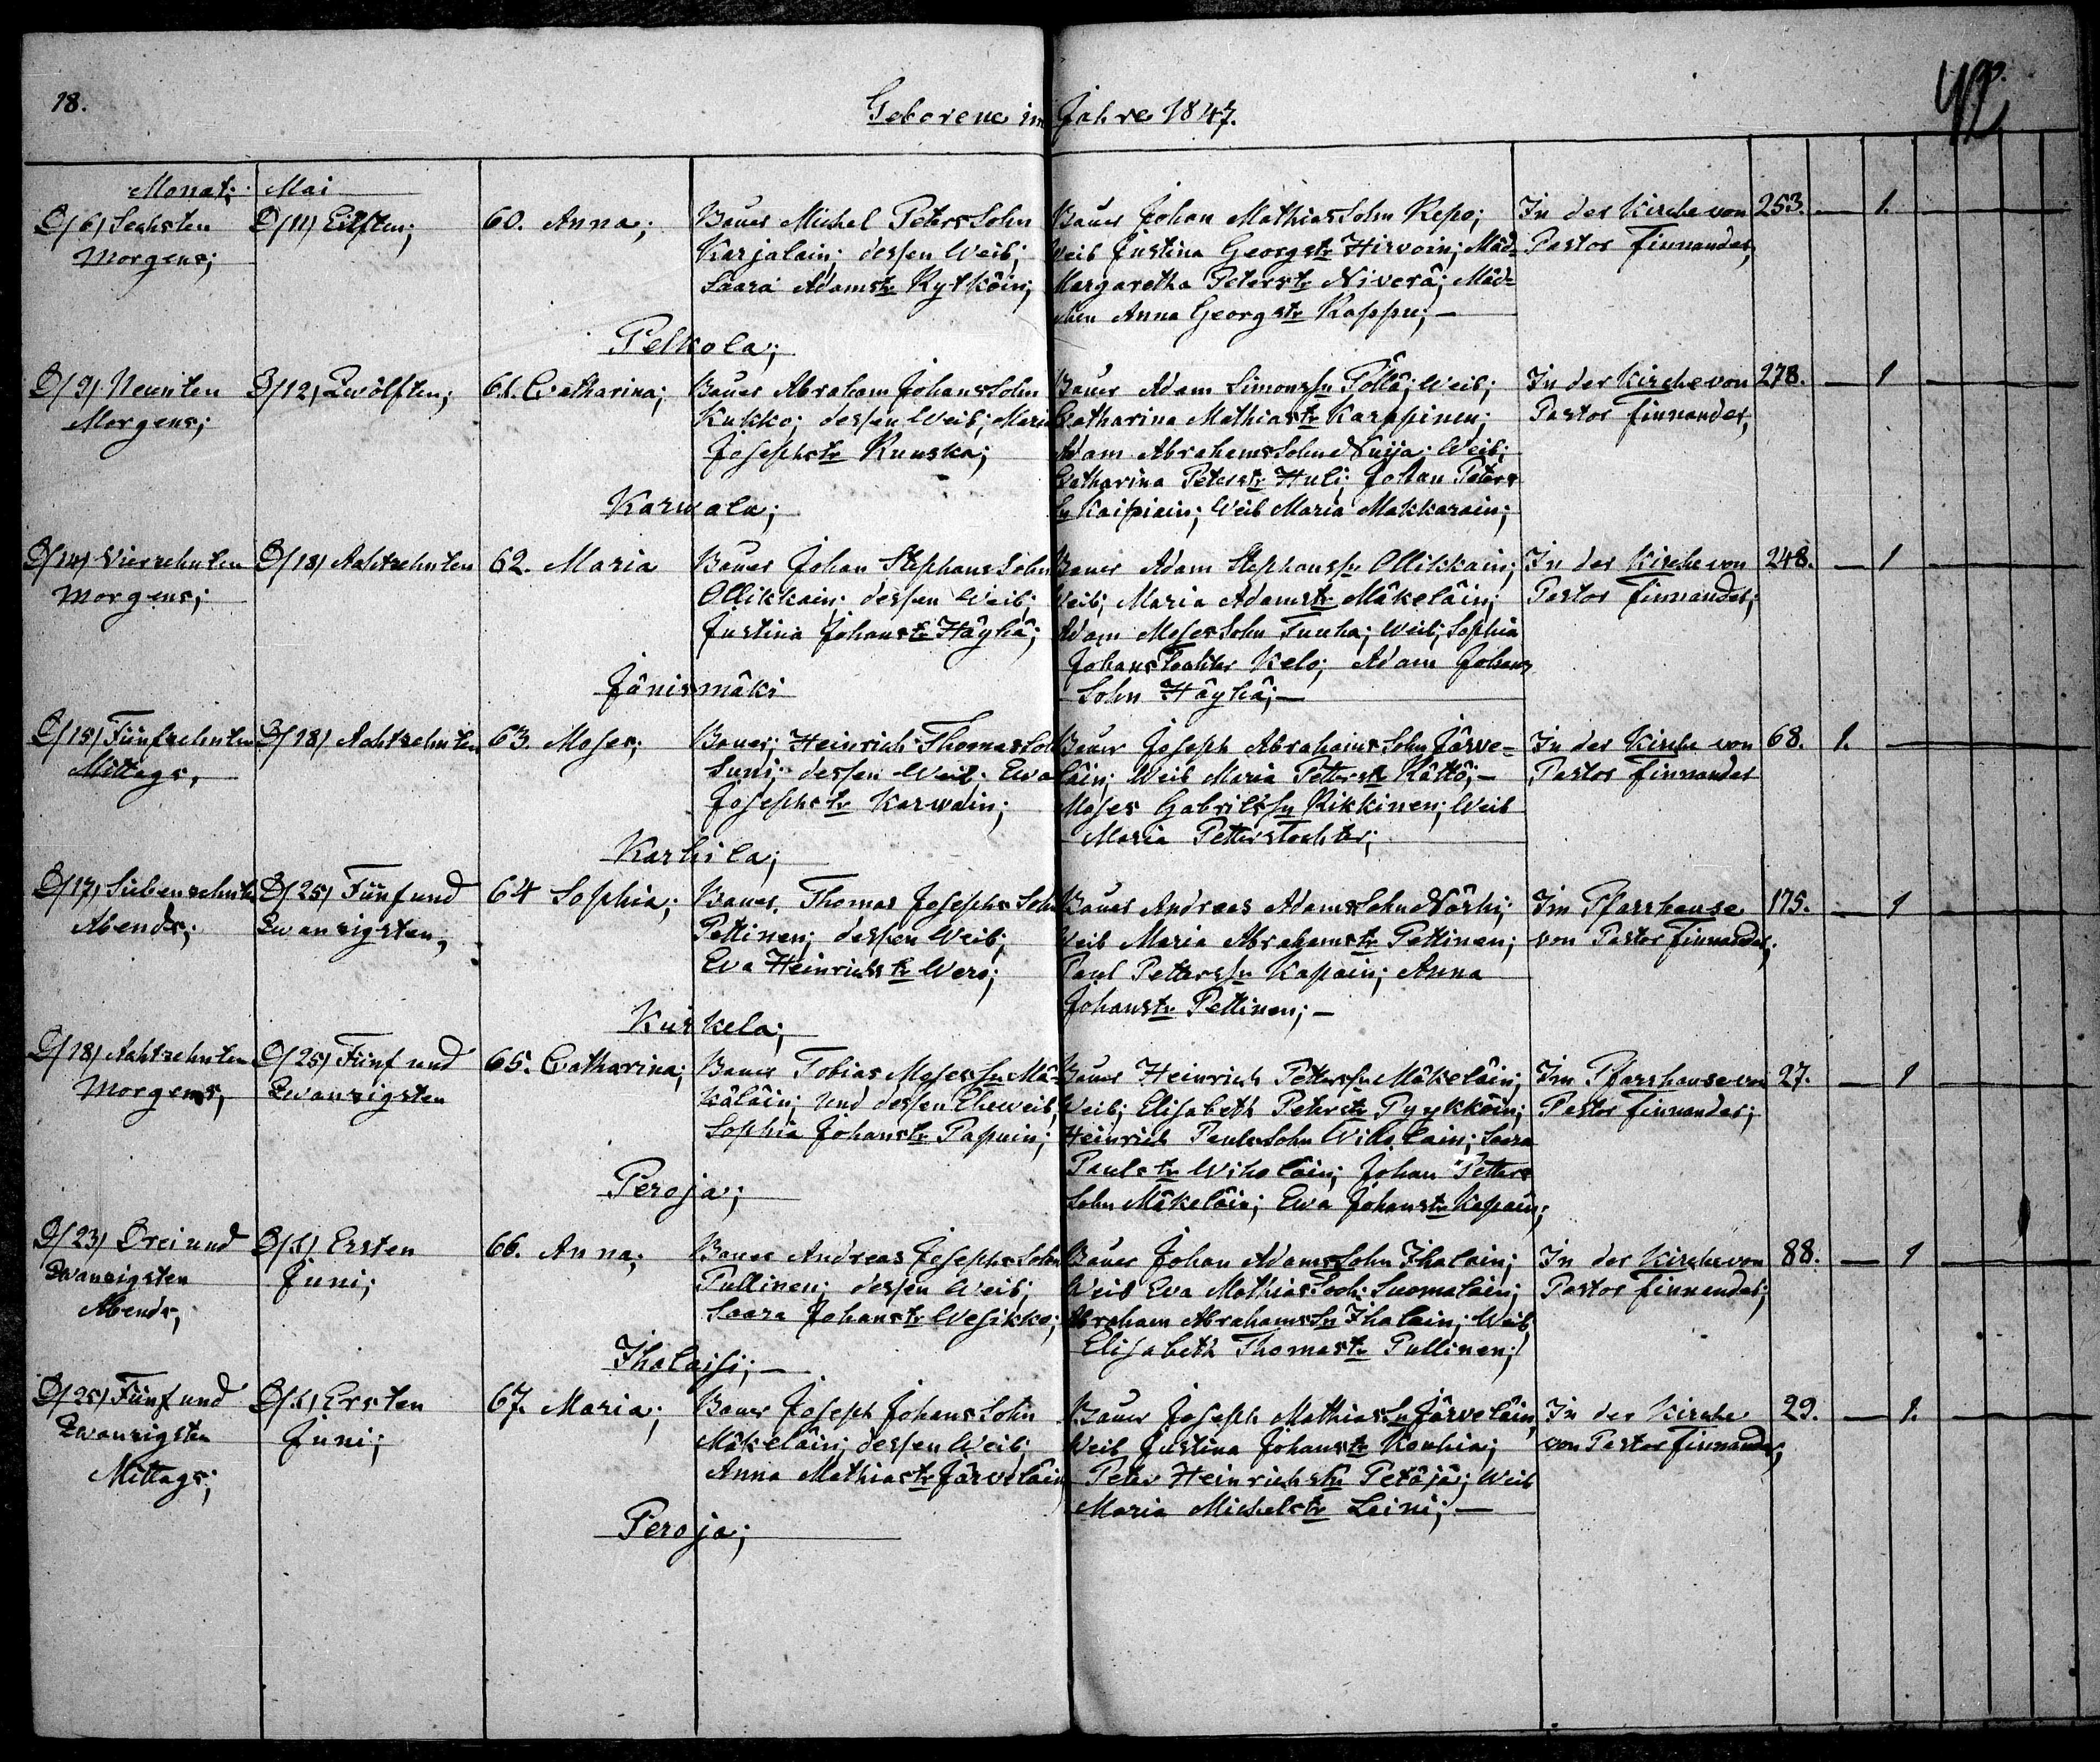 18.
Geborene im Jahre 1847.
Monat; Mai
D/6/ Sechsten D/11/ Eilften; 60. Anna; Bauer Michel Peters Sohn Bauer Johan Mathias Sohn Repo; In der Kirche von 253. — 1. —
Morgens; Karjalain; dessen Weib; Weib Justina Georgstr Hirvoin; Mäd- Pastor Finnander,
Saara Adamstr Rytköin; Margaretha Peterstr Niverä; Mäd-
chen Anna Georgstr Kappu; —
Pelkola;
D/9/ Neunten D/12/ Zwölften; 61. Catharina; Bauer Abraham Johans Sohn Bauer Adam Simonssn Pöllä; Weib; In der Kirche von 278. — 1 —
Morgens; Kukko; dessen Weib; Maria Catharina Mathiastr Karppinen; Pastor Finnander,
Josephstr Ruuska; Adam Abrahams Sohn Nuija; Weib;
Catharina Peterstr Huli; Johan Peters
sn Kaipiain; Weib Maria Makkarain;
Karwala;
D/14/ Vierzehnten D/18/ Achtzehnten 62. Maria Bauer Johan Stephans Sohn Bauer Adam Stephanssn Ollikkain; In der Kirche von 248. — 1 —
Morgens; Ollikkain; dessen Weib; Weib; Maria Adamstr Mäkeläin; Pastor Finnander;
Justina Johanstr Häyhä; Adam Moses Sohn Tuuha; Weib; Sophia
Johans Tochter Kelo; Adam Johans
Sohn Häyhä; —
Jänismäki
D/15/ Fünfzehnten D/18/ Achtzehnten 63. Moses; Bauer; Heinrich Thomas Sohn Bauer Joseph Abrahams Sohn Järve- In der Kirche von 68. 1. —
Mittags, Suni; dessen Weib. Ewa läin; Weib Maria Petterstr Kättö; — Pastor Finnander
Josephstr Karwain; Moses Gabrielssn Rikkinen; Weib
Maria Petters Tochter;
Karhila;
D/17/ Siebenzehnten D/25/ Fünf und 64 Sophia; Bauer. Thomas Josephs Sohn Bauer Andreas Adams Sohn Närhi; Im Pfarrhause 175. — 1 —
Abends; Zwanzigsten, Pettinen; dessen Weib; Weib Maria Abrahamstr Pettinen; von Pastor Finnander;
Eva Heinrichstr Wero; Paul Peterssn Kapain; Anna
Johanstr Pettinen; —
Kuiskela;
D/18/ Achtzehnten D/25/ Fünf und 65. Catharina; Bauer Tobias Mosessn Mä- Bauer Heinrich Petterssn Mäkeläin; Im Pfarrhause von 27. — 1 —
Morgens, Zwanzigsten käläin; und dessen Eheweib, Weib; Elisabeth Peterstr Pyykköin; Pastor Finnander;
Sophia Johanstr Papuin; Heinrich Pauls Sohn Wiholain; Saara
Paulstr Wiholäin; Johan Petters
Sohn Mäkeläin; Ewa Johanstr Kapain;
Peroja;
D/23/ Drei und D/1/ Ersten 66. Anna; Bauer Andreas Josephs Sohn Bauer Johan Adams Sohn Ihalain; In der Kirche von 88. — 1 —
Zwanzigsten Juni; Pullinen; dessen Weib; Weib Eva Mathias Toch: Suomalain; Pastor Finnander;
Abends, Saara Johanstr Wesikko; Abraham Abrahamssn Ihalain; Weib
Elisabeth Thomastr Pullinen;
Ihalaisi; —
D/25/ Fünf und D/1/ Ersten 67. Maria; Bauer Joseph Johans Sohn Bauer Joseph Mathiassn Järveläin, In der Kirche 29. — 1. —
Zwanzigsten Juni; Mäkeläin; dessen Weib; Weib Justina Johanstr Kouhia; von Pastor Finnander,
Mittags; Anna Mathiastr Järveläin Peter Heinrichssn Petäjä; Weib
Maria Michelstr Leini; —
Peroja;